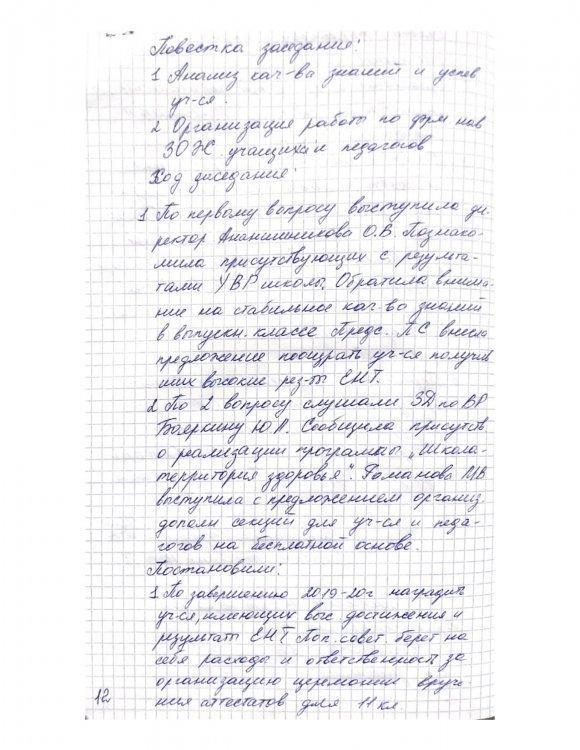 Повестка заседания:
1 Анализ кач-ва знаний и успев
уч-ся.
2 Организация работы по форм нав
ЗОЖ учащихся и педагогов
Ход заседания:
1 По первому вопросу выступила ди-
ректор Ананишникова О.В. Познако-
мила присутствующих с результа-
тами УВР школы. Обратила внима-
ние на стабильное кач-во знаний
в выпускн. классе Предс. ПС внесла
предложение поощрать уч-ся получив
ших высокие рез-ты ЕНТ.
2 По 2 вопросу слушали ЗД по ВР
Бояркину Ю.А. Сообщила присутств
о реализации программы „Школа-
территория здоровья". Романова МВ
выступила с предложением организ
дополн секций для уч-ся и педа-
гогов на бесплатной основе.
Постановили:
1 По завершению 2019-20г наградить
уч-ся, имеющих выс. достижения и
результат ЕНТ Поп. совет берет на
себя расходы и ответственность за
организацию церемонии вруче
ния аттестатов для 11 кл
12